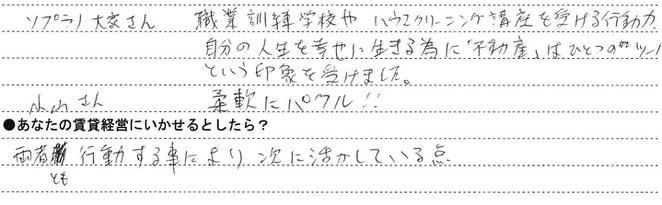 ソプラノ大家さん 職業訓練学校や ハウスクリーニング講座を受ける行動力
自分の人生を幸せに生きる為に「不動産」はひとつの"ツール"
という印象を受けました。
さん 柔軟にパワフル!!
●あなたの賃貸経営にいかせるとしたら?
両者とも 行動する事により 次に活かしている点